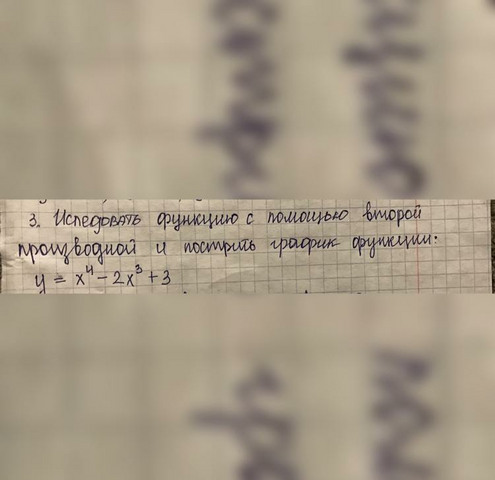 3. Испедовать функцию с помощью второй
производной и построить график функции:
y = x⁴ - 2x³ + 3